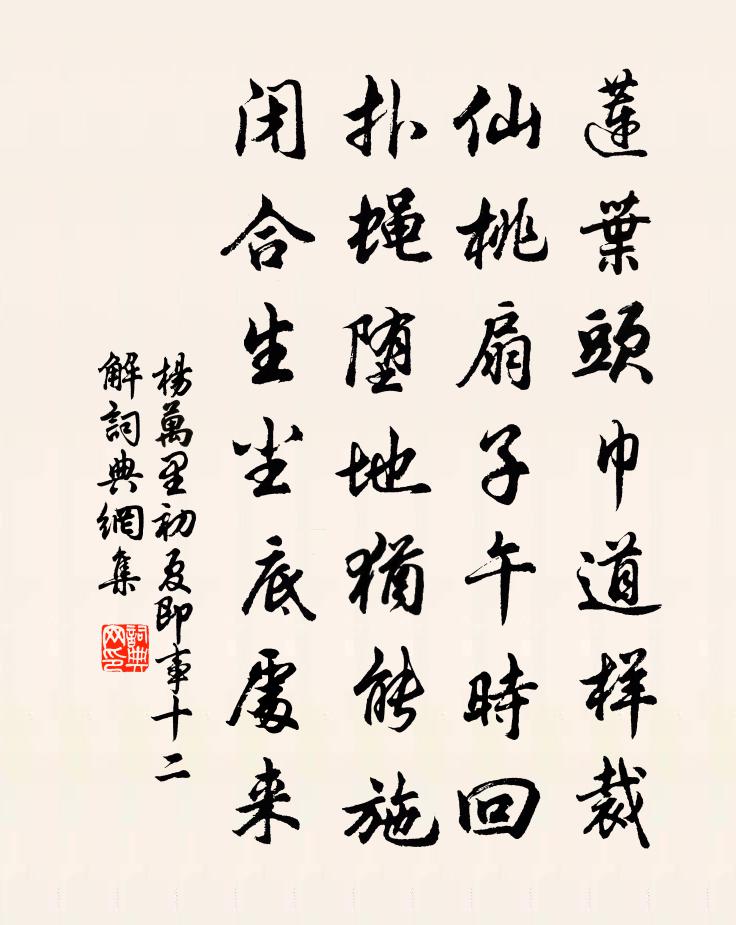 蓮葉頭巾道样裁
仙桃扇子午時回
扑蝇堕地犹能施
闭合生尘底處来
楊萬里初夏即事十二
解詞典網集
詞典网印